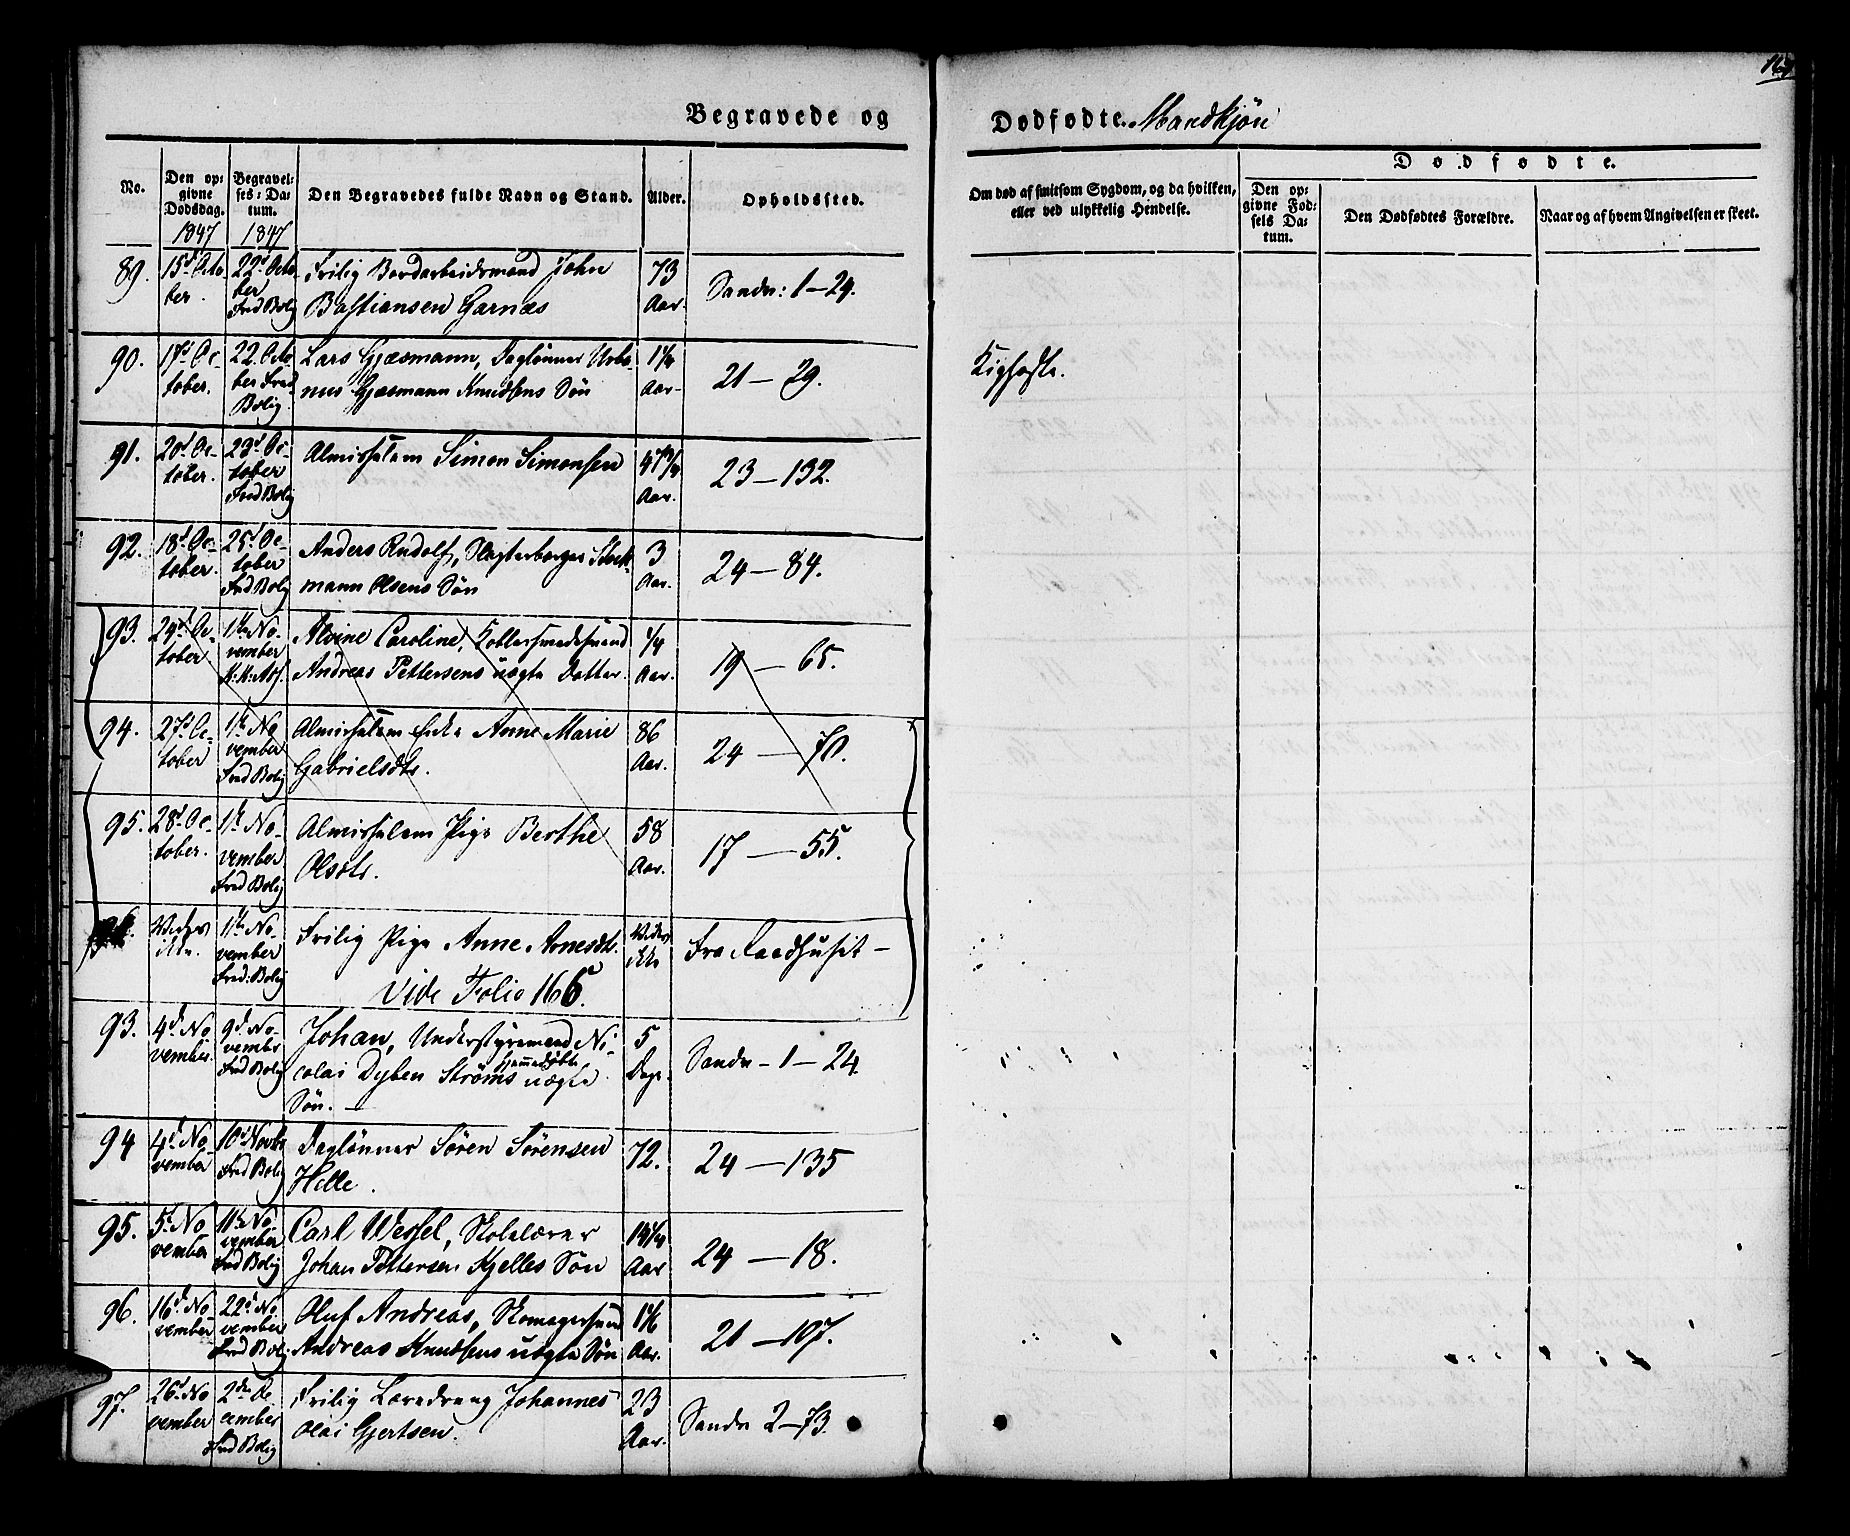 Begravede og Dødfødte. Mandkjøn
No.
Den op-
givne
Dødsdag.
1847
Begravel-
ses-Da-
tum.
1847
Den Begravedes fulde Navn og Stand.
Alder.
Opholdssted.
Om død af smitsom Sygdom, og da hvilken,
eller ved ulykkelig Hendelse.
Dødfødte.
Den op-
givne Fød-
sels Da-
tum.
Den Dødfødtes Forældre.
Naar og af hvem Angivelsen er skeet.
89.
15d Octo
ber.
22d Octo
ber
Fred Bolig
Frilig Bordarbeidsmand John
Bastiansen Garnæs
73
Aar.
Sandv: 1–24.
90.
17d Oc-
tober.
22. Octo
ber Fred
Bolig
Lars Gjæsmann, Daglønner Urba-
nus Gjæsmann Knudsens Søn
1¼
Aar.
21–29.
91.
20d Oc-
tober.
23d Oc-
tober
Fred Bolig
Almisselem Simon Simonsen
Aar.
23–132.
92.
18d Oc-
tober.
25d Oc-
tober
Fred Bolig
Anders Rudolf, Slagterborger
mann Olsens Søn
3
Aar.
24–84.
93.
29d Oc-
tober.
1ste No-
vember
Alvine Caroline, Kobbersmedsvend
Andreas Pettersens uægte Datter.
¼
Aar.
19–65.
94.
27d Oc-
tober
1ste No
vember
Fred Bolig
Almisselem Enke Anne Marie
Gabrielsdtr.
86
Aar.
24–70.
95.
28d Oc-
tober.
1ste No-
vember
Fred Bolig
Almisselem Pige Berthe
Olsdtr.
58
Aar.
17–55.
96.
Vides
ikke.
1ste No-
vember
Fred: Bolig
Frilig Pige Anne Arnesdtr.
Vide Folio 166.
Vides
ikke
Fra Raadhuset –
93.
4d No
vember.
9d No-
vember
Fred Bolig
Johan, Understyrmand Ni-
colai Dyben Strøms hjemmedøbte uægte
Søn. —
5
Dage.
Sandv – 1–24.
94
4d No
vember
10d Novbr
Fred Bolig
Daglønner Søren Sørensen
Helle.
72.
24–135
95.
5d No
vember
11te No-
vember
Fred Bolig
Carl Wessel, Skolelærer
Johan Pettersen Kjelles Søn
Aar
24–18.
96.
16d No
vember
22d No
vember
Fred Bolig
Oluf Andreas, Skomagersvend
Andreas Knudsens uægte Søn
1⅙
Aar.
21–107.
97.
26d No
vember
2den De
cember
Fred Bolig
Frilig Læredreng Johannes
Olai Gjertsen.
23
Aar.
Sandv 2–73.